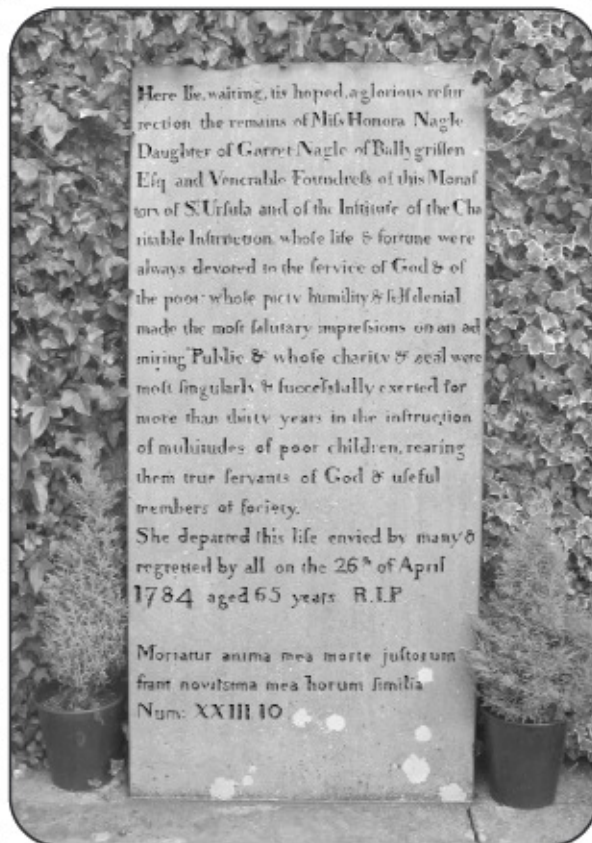 Here lie, waiting, tis hoped, a glorious reſur
rection the remains of Miſs Honora Nagle
Daughter of Garret Nagle of Ballygriſſen
Eſq and Venerable Foundreſs of this Monaſ
tory of St. Urſula and of the Inſtitute of the Cha
ritable Inſtruction, whoſe life & fortune were
always devoted to the ſervice of God & of
the poor: whoſe piety humility & ſelf denial
made the moſt ſalutary impreſsions on an ad
miring Public & whoſe charity & zeal were
moſt ſingularly & ſucceſsfully exerted for
more than thirty years in the inſtruction
of multitudes of poor children, rearing
them true ſervants of God & uſeful
members of ſociety.
She departed this life envied by many &
regretted by all on the 26th of April
1784 aged 65 years R.I.P
Moriatur anima mea morte juſtorum
fiant noviſsima mea horum ſimilia
Num: XXIII 10